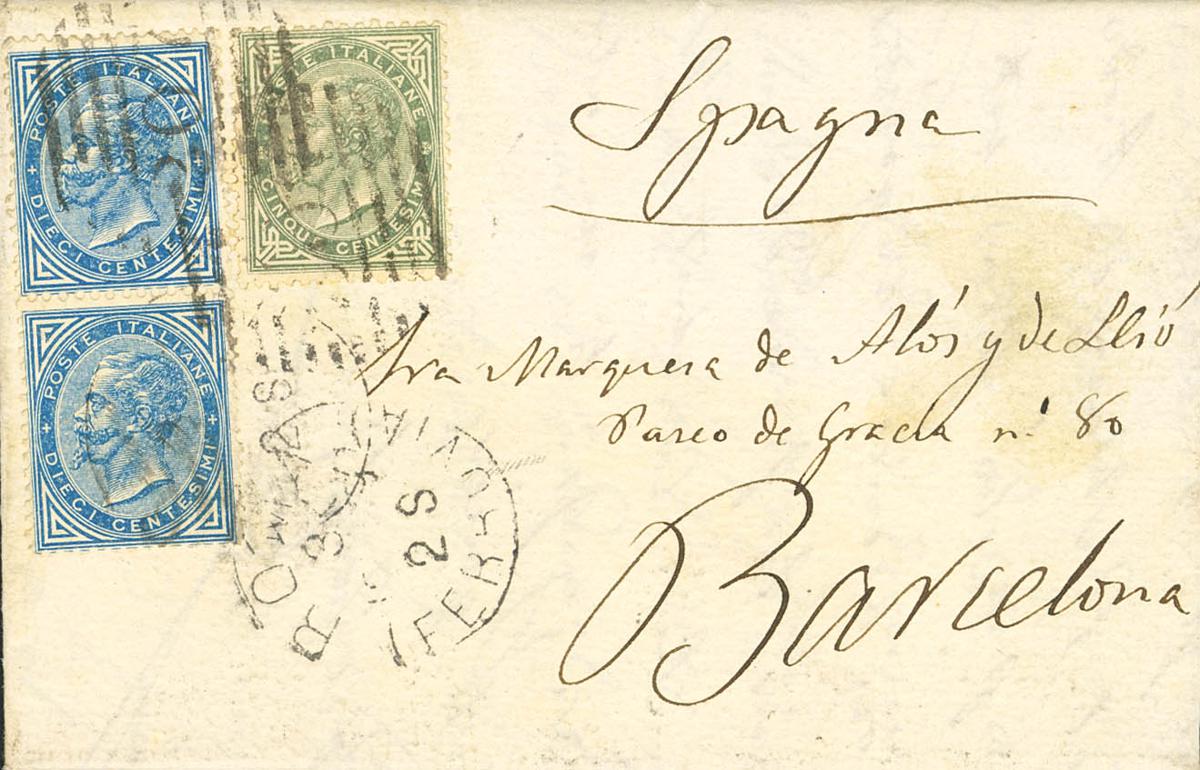 POSTE ITALIANE
DIECI CENTESIMI
POSTE ITALIANE
CINQUE CENTESIMI
POSTE ITALIANE
DIECI CENTESIMI
Spagna
Sra Marquesa de Alós y de Llió
Paseo de Gracia n. 80
Barcelona
ROMA
FERROVIA
2 S